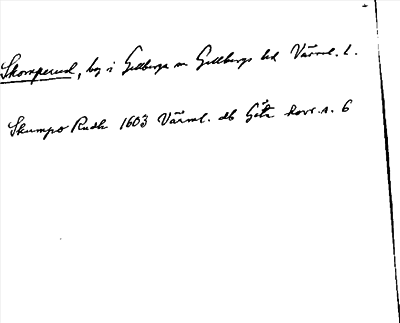 Skomperud, by i Gillberga sn Gillbergs hd Värml. l.
Skumpo Rudh 1603 Värml. db Götr havr. s. 6